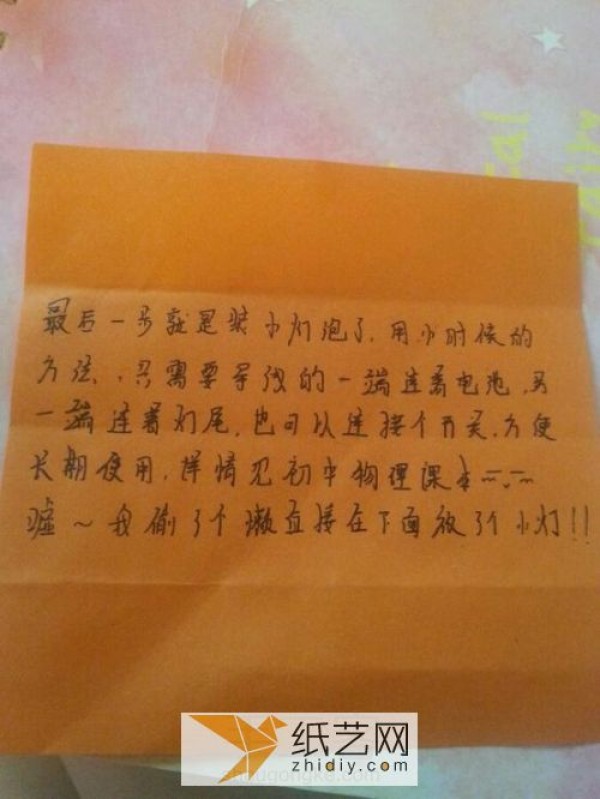 最后一步就是装小灯泡了，用小时候的
方法，只需要导线的一端连着电池，另
一端连着灯尾，也可以连接个开关，方便
长期使用，详情见初中物理课本=.=
嘘～我偷了个懒直接在下面放了个小灯!!
纸艺网
zhidiy.com
shougongke.com